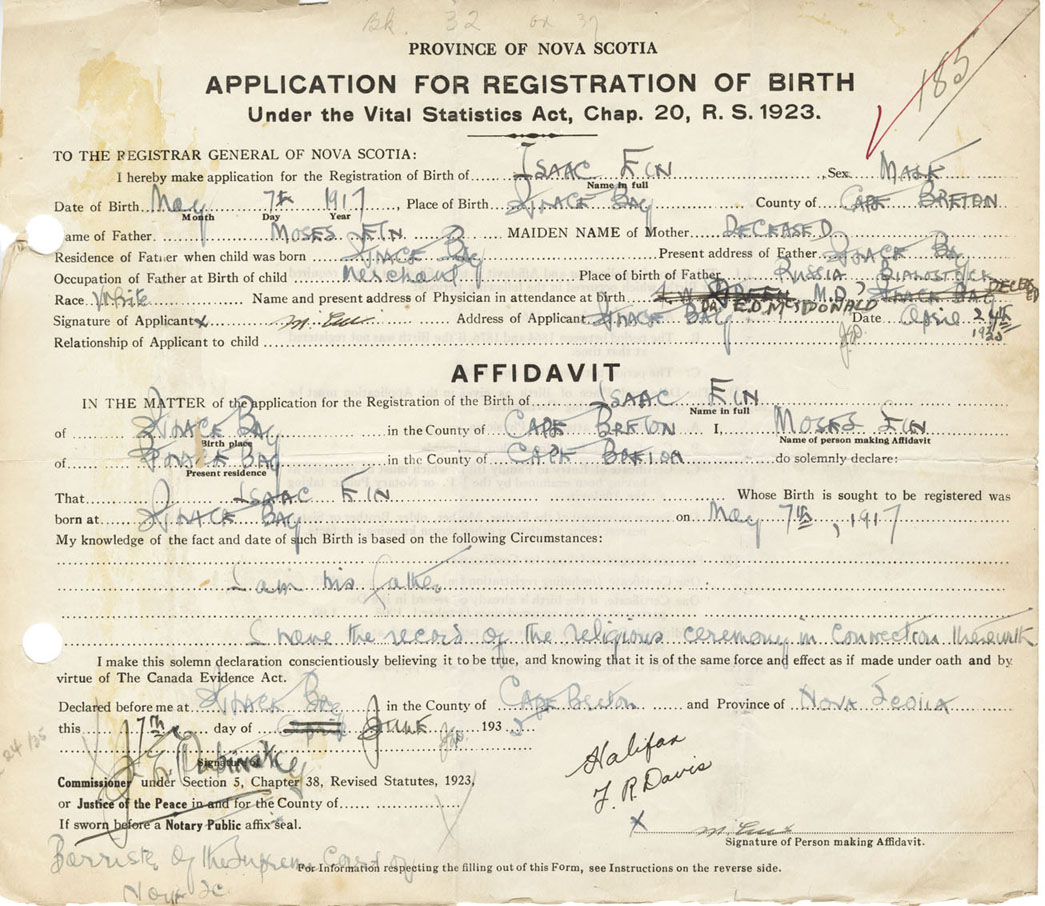 Bk. 32
185
PROVINCE OF NOVA SCOTIA
APPLICATION FOR REGISTRATION OF BIRTH
Under the Vital Statistics Act, Chap. 20, R. S. 1923.
TO THE REGISTRAR GENERAL OF NOVA SCOTIA:
I hereby make application for the Registration of Birth of ISAAC FIN Sex MALE
Name in full
Date of Birth May 7th 1917, Place of Birth GLACE BAY County of CAPE BRETON
Month Day Year
Name of Father MOSES FIN MAIDEN NAME of Mother DECEASED
Residence of Father when child was born GLACE BAY Present address of Father GLACE BAY
Occupation of Father at Birth of child Merchant Place of birth of Father RUSSIA BIALOSTOCK
Race White Name and present address of Physician in attendance at birth M.D. GLACE BAY DECEASED
DR. E.O. McDONALD
Signature of Applicant x Address of Applicant GLACE BAY Date April 24th
1935
Relationship of Applicant to child
AFFIDAVIT
IN THE MATTER of the application for the Registration of the Birth of ISAAC FIN
Name in full
of GLACE BAY in the County of CAPE BRETON I, MOSES FIN
Birth place Name of person making Affidavit
of GLACE BAY in the County of CAPE BRETON do solemnly declare:
Present residence
That ISAAC FIN Whose Birth is sought to be registered was
born at GLACE BAY on May 7th, 1917
My knowledge of the fact and date of such Birth is based on the following Circumstances:
I am his father
I have the record of the religious ceremony in connection therewith
I make this solemn declaration conscientiously believing it to be true, and knowing that it is of the same force and effect as if made under oath and by
virtue of The Canada Evidence Act.
Declared before me at GLACE BAY in the County of CAPE BRETON and Province of NOVA SCOTIA
this 17th day of JUNE 1935
24/35
Halifax
F. R. Davis
Commissioner under Section 5, Chapter 38, Revised Statutes, 1923,
or Justice of the Peace in and for the County of
If sworn before a Notary Public affix seal.
x
Signature of Person making Affidavit.
Barrister of the Supreme Court of
Nova Sc.
For Information respecting the filling out of this Form, see Instructions on the reverse side.